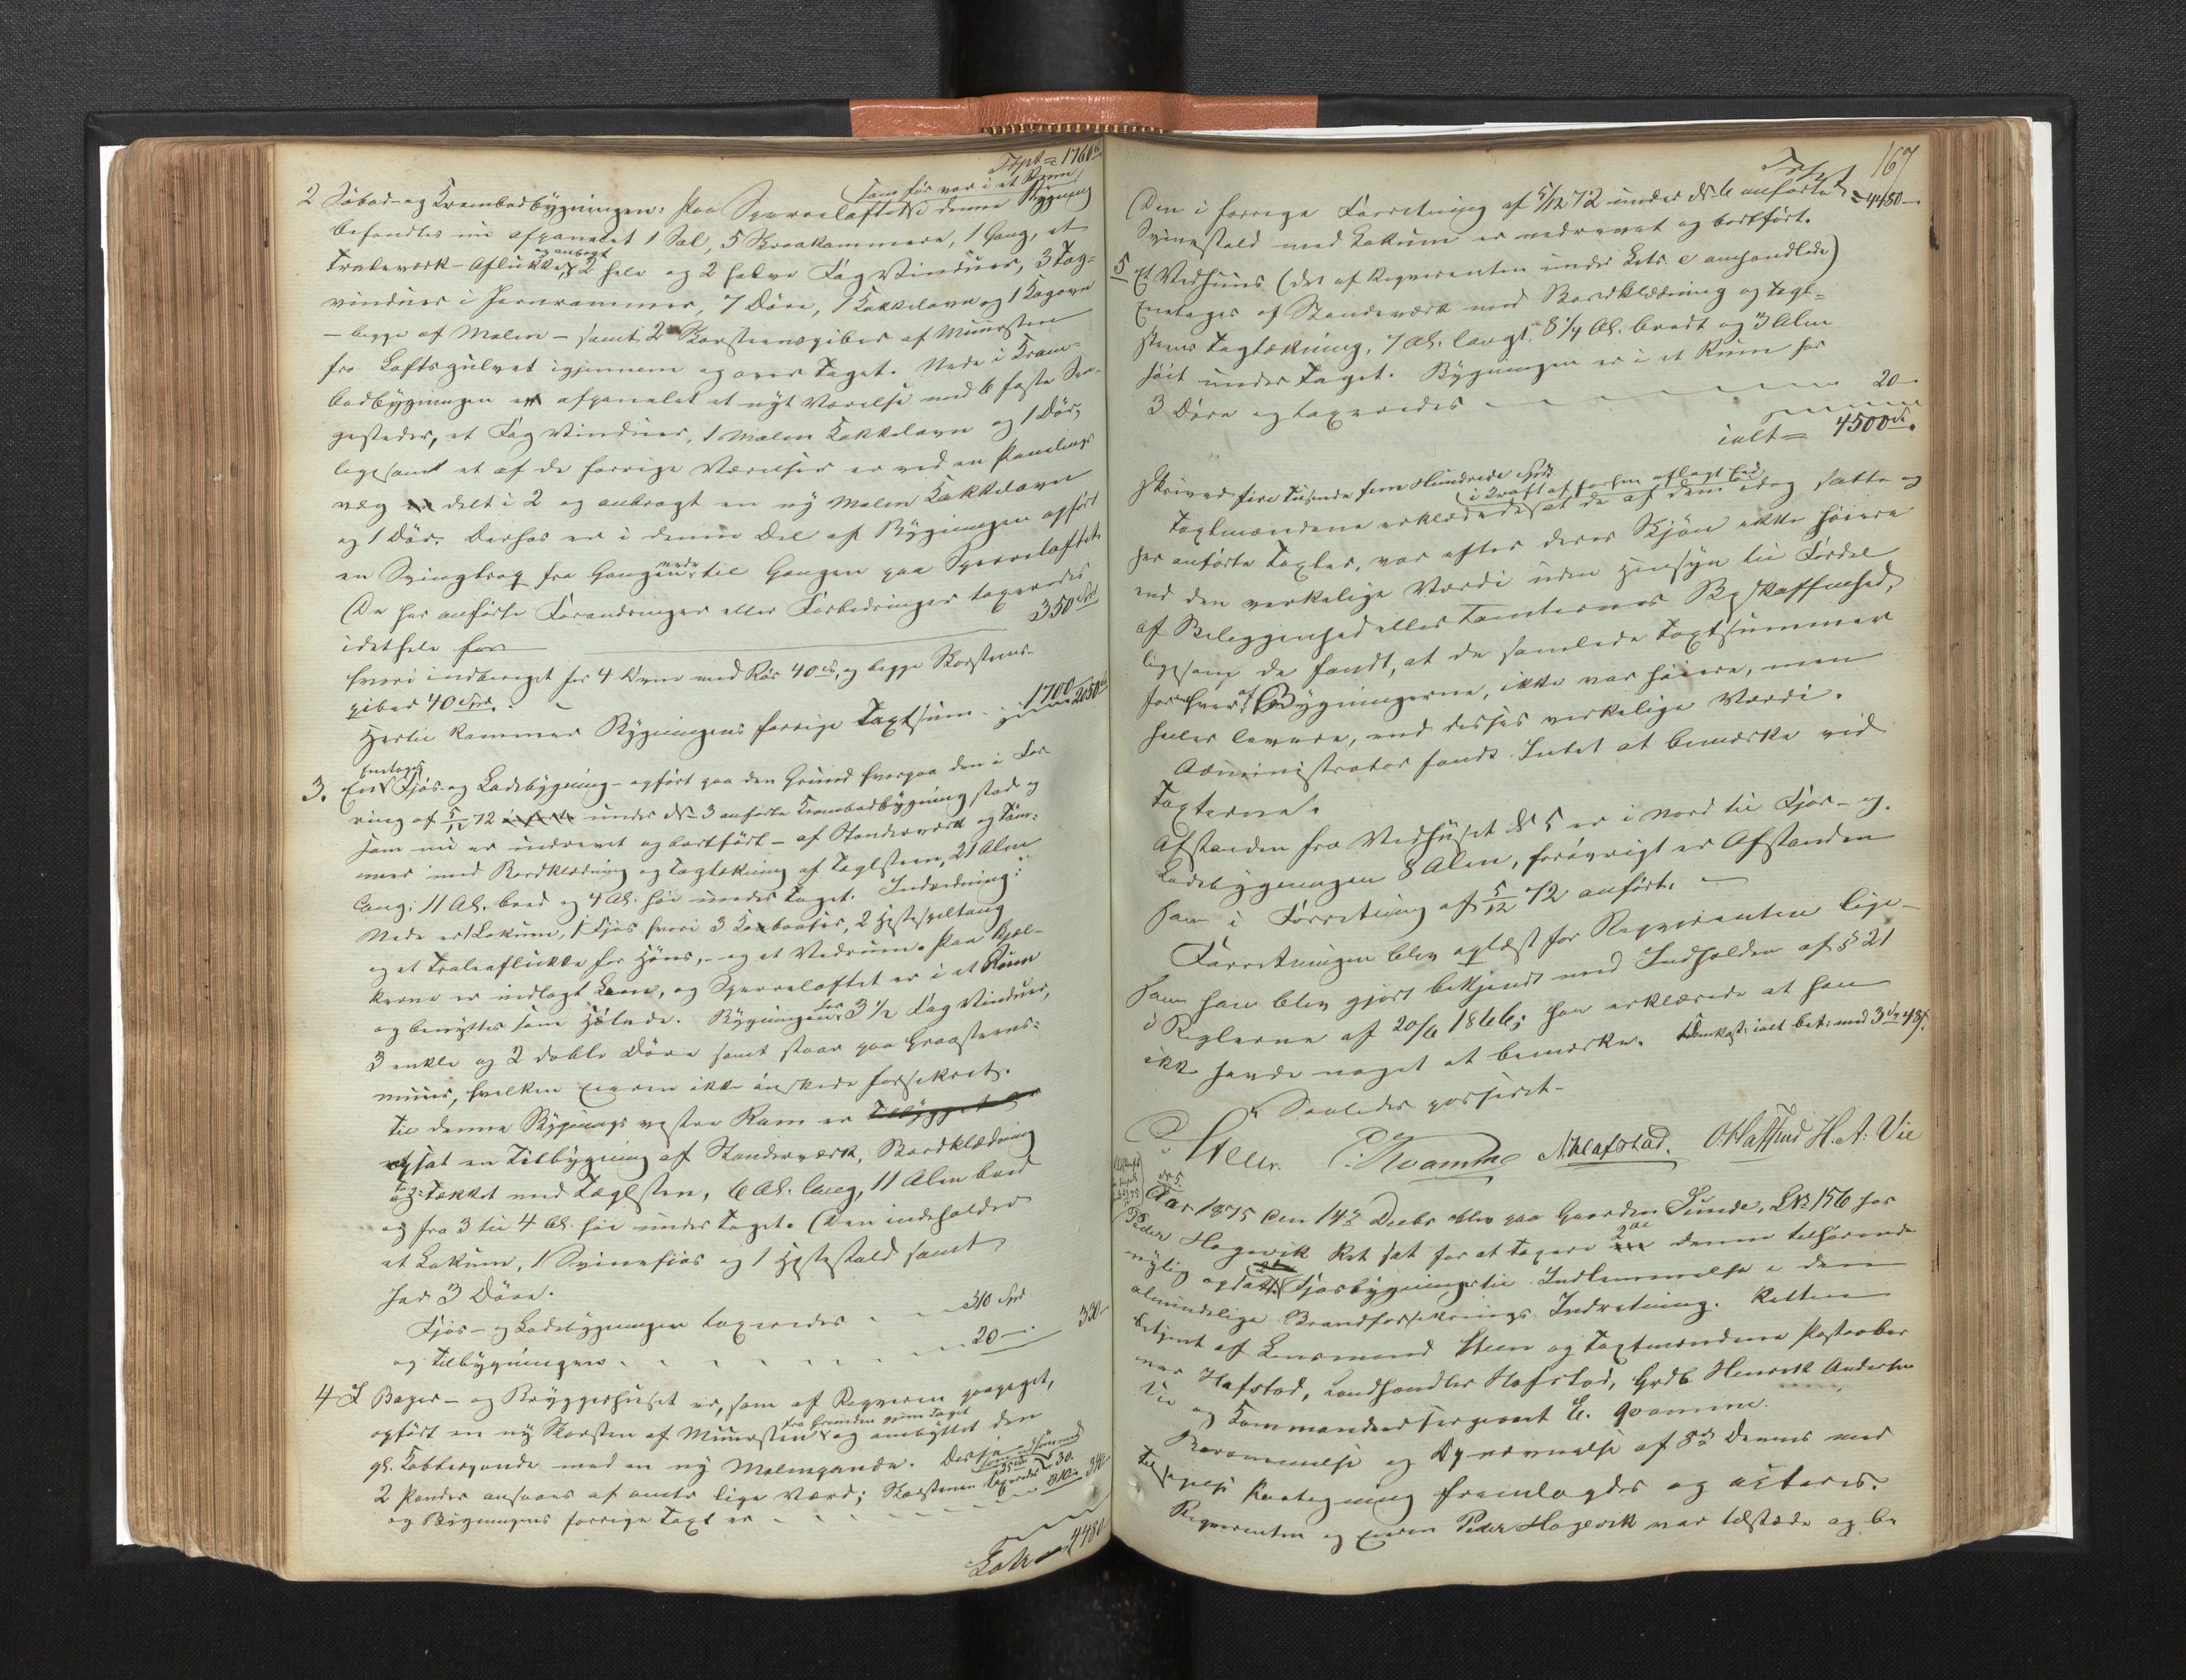 Tspt = 1760
2 Søbod- og Krambodbygningen: Paa Sperreloftet (som før var i et Rum) denne Bygning
befandtes nu afpanelet 1 Sal, 5 Kvistkammere, 1 Gang, et
Traleværk-Aflukke, og anbragt 2 hele og 2 halve Fag Vinduer, 3 Tag-
vinduer i Jernrammer, 7 Døre, 1 Kakkelovn og 1 Kogeovn
– begge af Malm – samt 2 Skorsteenspiber af Muursteen
fra Loftsgulvet igjennem og over Taget. Nede i Kram-
bodbygningen er afpanelet et nyt Værelse med 6 faste Sen-
gesteder, et Fag Vinduer, 1 Malm Kakkelovn og 1 Dør,
ligesom et af de forrige Værelser er ved en Panelings
væg delt i 2 og anbragt en ny Malm Kakkelovn
og 1 Dør. Derhos er i denne Del af Bygningen opført
en Svingtrap fra Gangen nede til Gangen paa Sperreloftet.
De her anførte Forandringer eller Forbedringer taxeredes
idethele for 350 Spd
hvori indberegnet for 4 Ovne med Rør 40 Spd, og begge Skorsteens-
piber 40 Spd.
Hertil kommer Bygningens forrige Taxtsum 1700 2050
3. En Enetages Fjøs- og Ladebygning – opført paa den Grund hvorpaa den i For
retning af 5/12 72 under No 3 anførte Krambodbygning stod og
som nu er nedrevet og bortført – af Standerværk og Tøm-
mer med Bordklædning og Tagtækning af Taglsteen, 21 Alen
lang; 11 Al. bred og 4 Al. høi under Taget. Indredning:
Nede er 1 Lokum, 1 Fjøs hvori 3 Kobaaser, 2 Hestespiltoug
og et Traleaflukke for Høns, – og et Vedrum. Paa Bjæl-
kerne er indlagt Lem, og Sperreloftet er i et Rum
og benyttes som Hølade. Bygningen har 3 1/2 Fag Vinduer,
3 enkle og 2 doble Døre samt staar paa Graasteens-
muur, hvilken Eieren ikke ønskede forsikret.
Til denne Bygnings vestre Ram er
opsat en Tilbygning af Standerværk, Bordklædning
og Tækket med Taglsten, 6 Al. lang, 11 Alen bred
og fra 3 til 4 Al. høi under Taget. (Den indeholder
et Lokum, 1 Svinefjøs og 1 Hestestald samt
har 3 Døre.
Fjøs- og Ladebygningen taxeredes 310 Spd
og Tilbygningen 20 – 330
4 I Bager- og Bryggerhuset er, som af Reqvirenten paapeget,
opført en ny Skorsten af Muursten fra Grunden gjennem Taget og ombyttet den
gl. Kobberpande med en ny Malmpande. Disse
2 Pander ansaaes af omtr. lige Værd; Skorstenen taxeredes 30.
og Bygningens forrige Taxt er 310 – 340
Lat. 4480
167
Tspt = 4480 –
(Den i forrige Forretning af 5/12 72 under No 6 anførte
Svinestald med Lokum er nedrevet og bortført.
5 Et Vedhuus (det af Reqvirenten under Litr. c omhandlede)
Enetages af Standerværk med Bordklædning og Tagl-
steens Tagtækning, 7 Al. langt, 8 1/4 Al. bredt og 3 Alen
høit under Taget. Bygningen er i et Rum har
3 Døre og taxeredes 20 –
ialt = 4500 Spd.
Skriver fire Tusende fem Hundrede Spd.
Taxtmændene erklærede, i Kraft af forhen aflagt Eed, at de af dem idag satte og
her anførte Taxter, var efter deres Skjøn ikke høiere
end den verkelige Værdi uden Hensyn til Fordel
af Beliggenhed eller Tomternes Beskaffenhed,
ligesom de fandt, at de samlede Taxtsummer
for hver af Bygningerne, ikke var høiere, men
heller lavere, end disses verkelige Værdi.
Administrator fandt Intet at bemærke ved
Taxterne.
Afstanden fra Vedhuset No 5 er i Nord til Fjøs- og
Ladebygningen 8 Alen, forøvrigt er Afstanden
som i Forretning af 5/12 72 anført. –
Forretningen blev oplæst for Reqvirenten lige-
som han blev gjort bekjendt med Indholden af § 21
i Reglerne af 20/6 1866; han erklærede at han
ikke havde noget at bemærke. Omkost: ialt bet: med 3 Spd 43 ß.
Saaledes passeret.
Steen. E. Kvamme N. Hafstad. O. Hafstad H. A: Vie
No 5.
Aar 1875 den 14de Decbr blev paa Gaarden Sunde, LNo 156 hos
Peder Hagevik Ret sat for at taxere 2de denne tilhørende
nylig opsatte Fjøsbygninger til Indlemmelse i den
almindelige Brandforsikrings Indretning. Retten
betjent af Lensmand Steen og Taxtmændene Postaaber
ner Hafstad, Landhandler Hafstad, Grdb. Henrik Andersen
Vie og Kommandeersergeant E. Qvamme.
Berammelse og Opnævnelse af 8de Dennes med
Tilhør. Paategning fremlagdes og acteres.
Reqvirenten og Eieren Peder Hagevik var tilstede og be